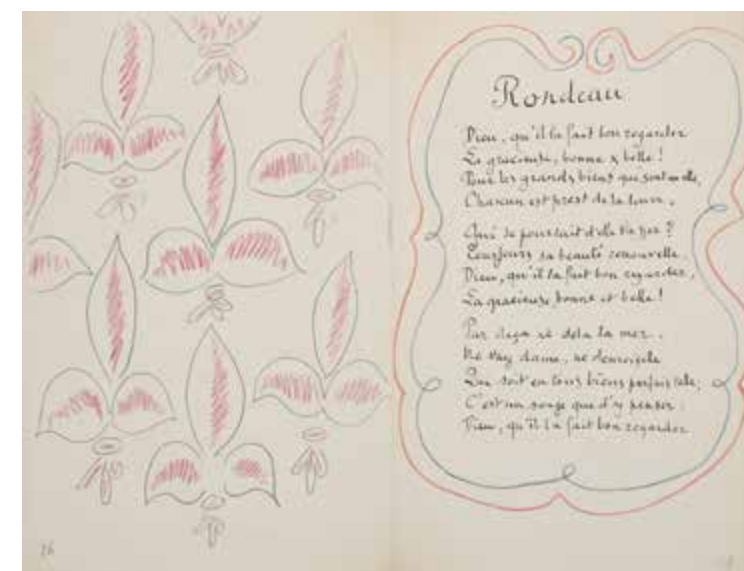 26
Rondeau
Dieu, qu'il la fait bon regarder
La gracieuse, bonne & belle !
Pour les grands biens que sont en elle,
Chacun est prest de la louer.
Qui se pourrait d'elle lasser ?
Tousjours sa beauté renouvelle.
Dieu, qu'il la fait bon regarder,
La gracieuse bonne et belle !
Par deça ne dela la mer.
Ne say dame, ne demoiselle
Qui soit en tous biens parfais telle;
C'est un songe que d'y penser.
Dieu, qu'il la fait bon regarder